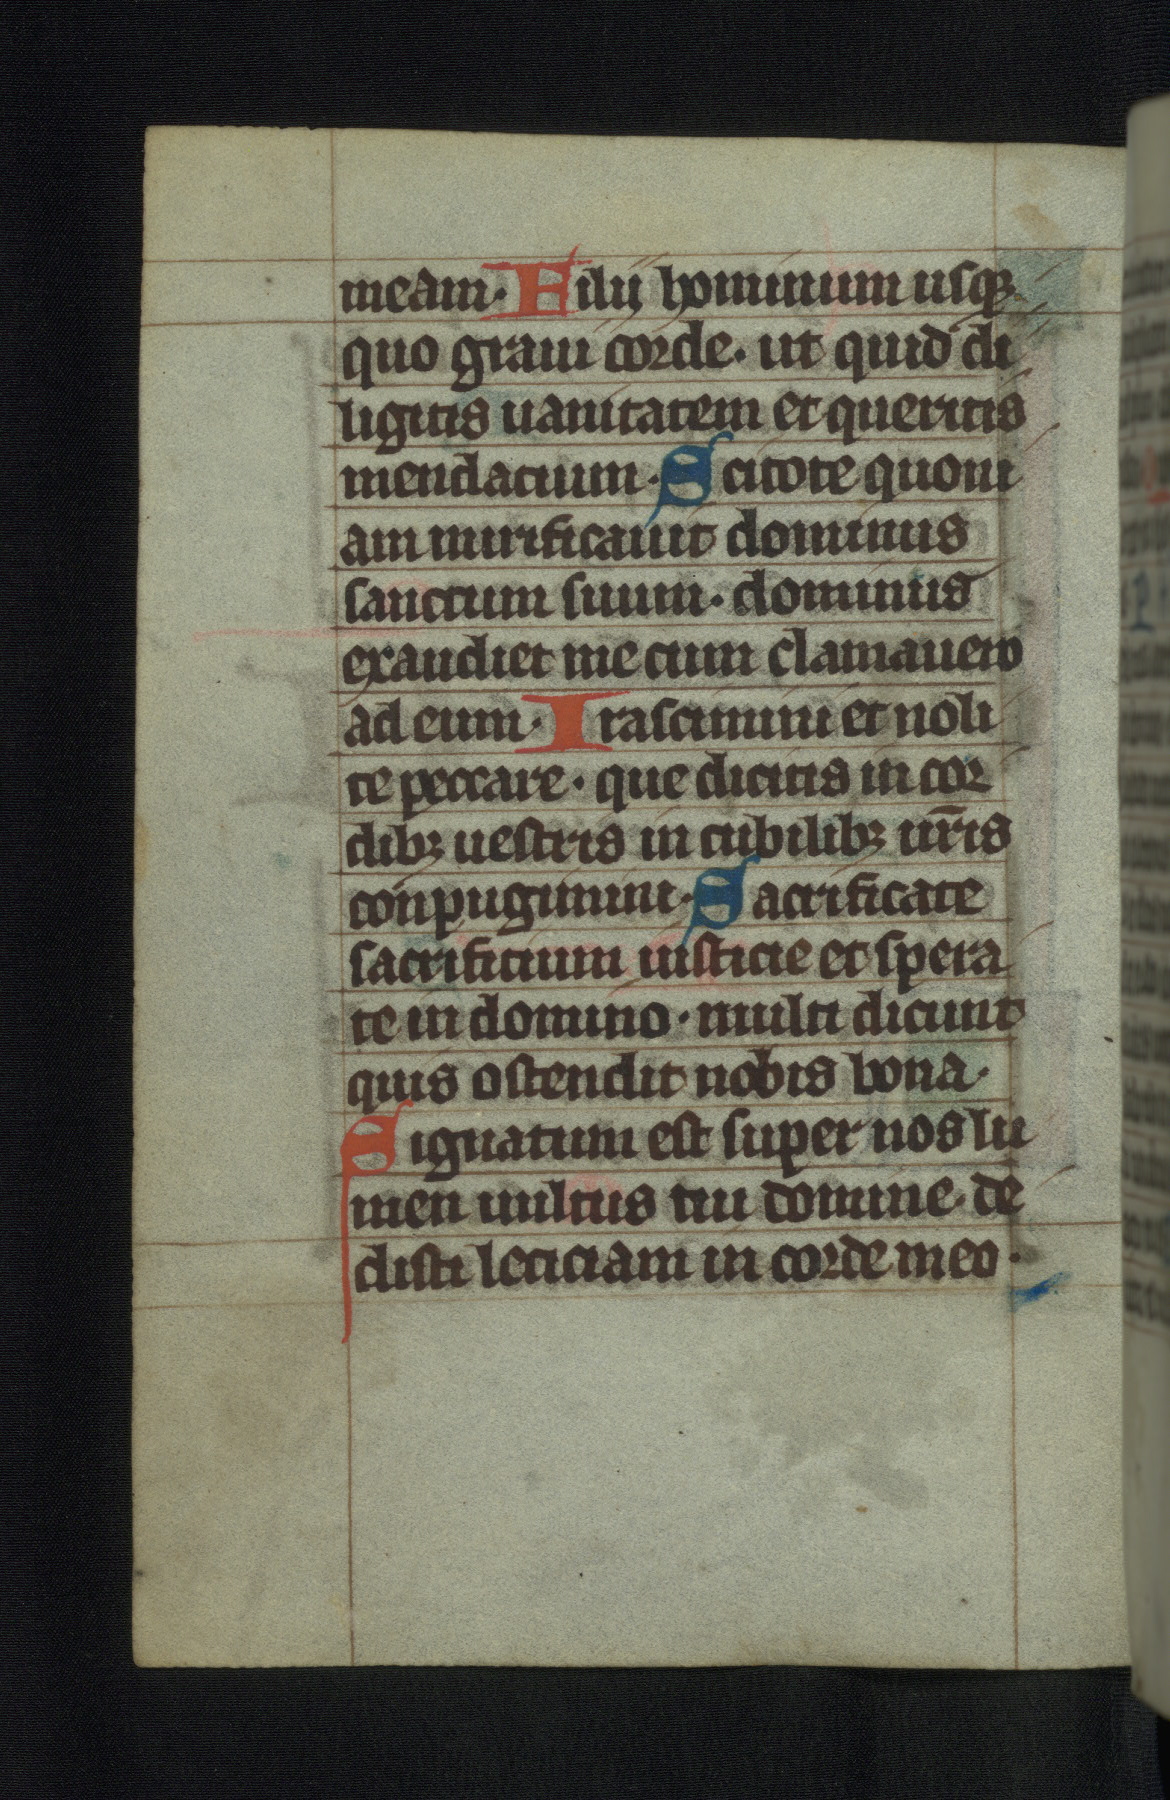 meam· Filij hominum usqꝫ
quo graui corde· ut quid di
ligitis uanitatem et queritis
mendacium· Scitote quoni
am mirificauit dominus
sanctum suum· dominus
exaudiet me cum clamauero
ad eum· Irascimini et noli
te peccare· que dicitis in cor
dibꝫ uestris in cubilibꝫ ur̅is
conpugimini· Sacrificate
sacrificium iusticie et spera
te in domino· multi dicunt
quis ostendit nobis bona·
Signatum est super nos lu
men uultus tui domine· de
disti leticiam in corde meo·